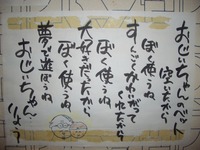 おじいちゃんのベット
空いたから
ぼく使うね
すんごくかわいがって
くれたから
ぼく使うね
大好きだったから
ぼく使うね
夢で遊ぼうね
おじいちゃん
りょう